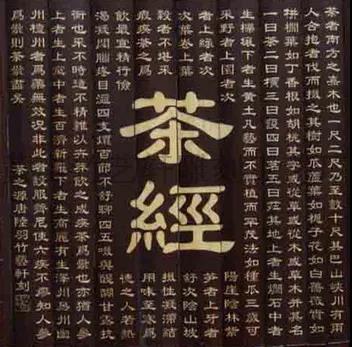 茶者南方之嘉木也一尺二尺乃至數十尺其巴山峽川有兩
人合抱者伐而掇之其樹如瓜蘆葉如梔子花如白薔薇實如
栟櫚葉如丁香根如胡桃其字或從草或從木或草木并其名
一曰茶二曰檟三曰蔎四曰茗五曰荈其地上者生爛石中者
生櫟壤下者生黃土凡藝而不實植而罕茂法如種瓜三歲可
采野者上園者次
陽崖陰林紫
者上綠者次
笋者上牙者
次葉卷上葉
舒次陰山坡
穀者不堪采
掇性凝滯結
瘕疾茶之爲
用味至寒爲
茶經
飲最宜精行儉
德之人若熱
渴凝悶腦疼目澀四支煩百節不舒聊四五啜與醍醐甘露抗
衡也采不時造不精雜以卉莽飲之成疾茶爲累也亦猶人參
上者生上黨中者生百濟新羅下者生高麗有生澤州易州幽
州檀州者爲藥無效況非此者設服薺苨使六疾不瘳知人參
爲累則茶累盡矣
茶之源唐陸羽竹藝軒刻